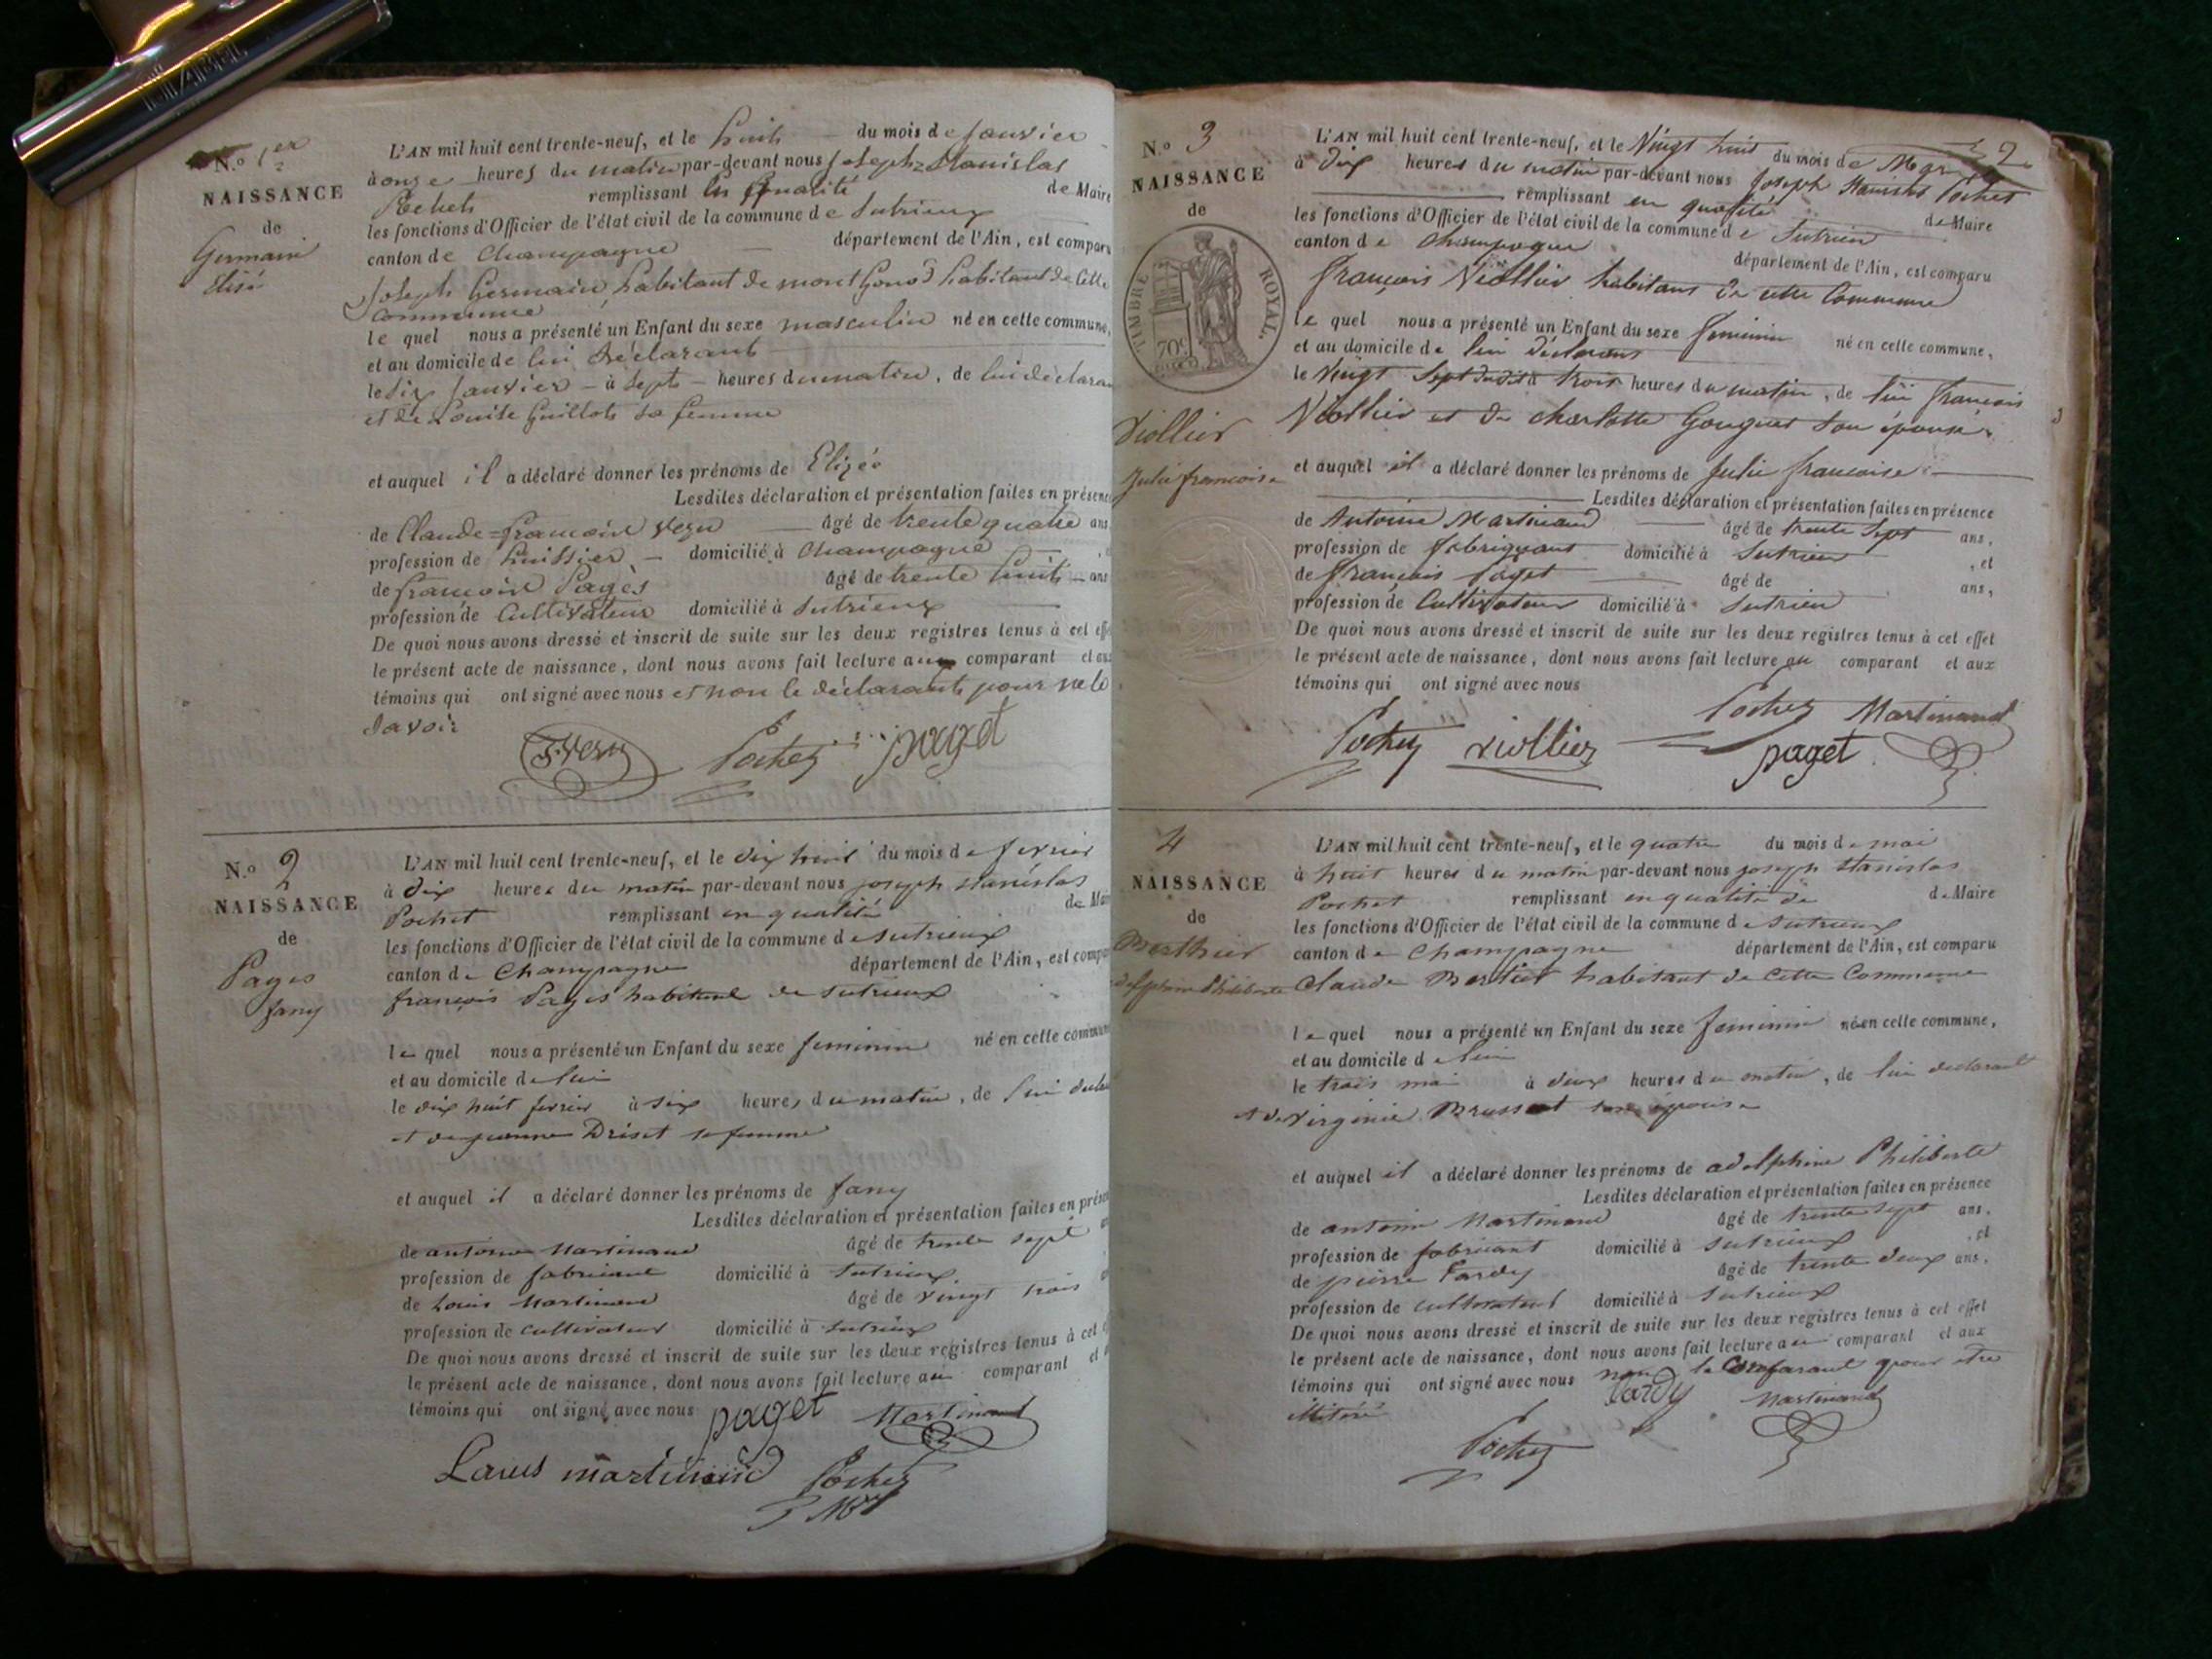 N.º 1er
NAISSANCE
de
Germain
Elisé
L'AN mil huit cent trente-neuf, et le huit du mois de Janvier
à onze heures du matin par-devant nous Joseph Stanislas
Pochet remplissant en qualité de Maire
les fonctions d'Officier de l'état civil de la commune de Sutrieux
canton de Champagne département de l'Ain, est comparu
Joseph Germain, habitant de habitant de cette
commune
le quel nous a présenté un Enfant du sexe masculin né en cette commune,
et au domicile de lui déclarant
le six Janvier à sept heures du matin, de lui déclara
et de Louise Guillot sa femme
et auquel il a déclaré donner les prénoms de Elizée
Lesdites déclaration et présentation faites en présenc
de Claude=françois Vezu âgé de trente quatre ans
profession de huissier, domicilié à Champagne
de françois Pages âgé de trente huit ans
profession de Cultivateur domicilié à Sutrieux
De quoi nous avons dressé et inscrit de suite sur les deux registres tenus à cet effe
le présent acte de naissance, dont nous avons fait lecture aux comparant et aux
témoins qui ont signé avec nous et non le déclarant pour ne le
savoir
Vezu Pochet paget
N.º 2
NAISSANCE
de
Pages
fany
L'AN mil huit cent trente-neuf, et le dix huit du mois de fevrier
à dix heures du matin par-devant nous joseph stanislas
Pochet remplissant en qualité de Mai
les fonctions d'Officier de l'état civil de la commune de Sutrieux
canton de Champagne département de l'Ain, est compa
françois Pages habitant de sutrieux
le quel nous a présenté un Enfant du sexe feminin né en cette commun
et au domicile de lui
le dix huit fevrier à six heures du matin, de lui decla
et de jeanne Driset sa femme
et auquel il a déclaré donner les prénoms de fany
Lesdites déclaration et présentation faites en prése
de antoine Martinand âgé de trente sept
profession de fabricant domicilié à Sutrieux
de Louis Martinand âgé de vingt trois
profession de cultivateur domicilié à Sutrieux
De quoi nous avons dressé et inscrit de suite sur les deux registres tenus à cet e
le présent acte de naissance, dont nous avons fait lecture au comparant et
témoins qui ont signé avec nous paget Martinand
Laus martinand Pochet
2
N.º 3
NAISSANCE
de
TIMBRE ROYAL.
70c
Viollier
Julie françoise
L'AN mil huit cent trente-neuf, et le Vingt huit du mois de Mars
à dix heures du matin par-devant nous Joseph Stanislas Pochet
remplissant en qualité de Maire
les fonctions d'Officier de l'état civil de la commune de Sutrieu
canton de Champagne département de l'Ain, est comparu
françois Viollier habitant de cette Commune
le quel nous a présenté un Enfant du sexe feminin né en cette commune,
et au domicile de lui déclarant
le Vingt Sept dudit à trois heures du matin, de lui françois
Viollier et de charlotte Gonguet son épouse
et auquel il a déclaré donner les prénoms de Julie françoise
Lesdites déclaration et présentation faites en présence
de Antoine Martinand âgé de trente Sept ans,
profession de fabriquant domicilié à Sutrieu, et
de françois Paget âgé de ans,
profession de Cultivateur domicilié à Sutrieu
De quoi nous avons dressé et inscrit de suite sur les deux registres tenus à cet effet
le présent acte de naissance, dont nous avons fait lecture au comparant et aux
témoins qui ont signé avec nous
Pochet Martinand
Pochet viollier paget
4
NAISSANCE
de
Berthier
adelphine Philiberte
L'AN mil huit cent trente-neuf, et le quatre du mois de mai
à huit heures du matin par-devant nous joseph stanislas
Pochet remplissant en qualité de de Maire
les fonctions d'Officier de l'état civil de la commune de sutrieux
canton de Champagne département de l'Ain, est comparu
Claude Bertiet habitant de cette Commune
le quel nous a présenté un Enfant du sexe feminin né en cette commune,
et au domicile de lui
le trois mai à deux heures du matin, de lui declarant
et de Virginie Brussat son épouse
et auquel il a déclaré donner les prénoms de adelphine Philiberte
Lesdites déclaration et présentation faites en présence
de antoine Martinand âgé de trente sept ans,
profession de fabricant domicilié à sutrieux, et
de pierre Tardy âgé de trente deux ans,
profession de cultivateur domicilié à sutrieux
De quoi nous avons dressé et inscrit de suite sur les deux registres tenus à cet effet
le présent acte de naissance, dont nous avons fait lecture au comparant et aux
témoins qui ont signé avec nous non le Comparant pour etre
illitéré Tardy Martinand
Pochet